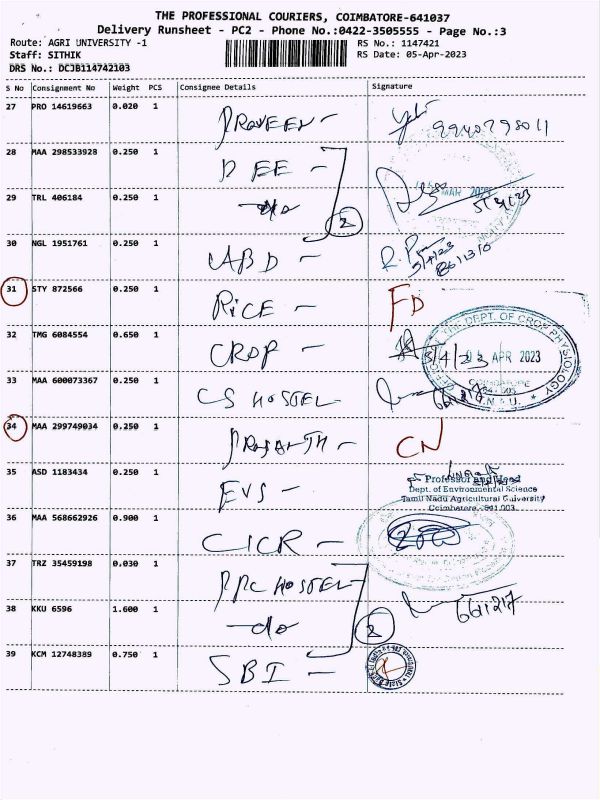 THE PROFESSIONAL COURIERS, COIMBATORE-641037
Delivery Runsheet - PC2 - Phone No.:0422-3505555 - Page No.:3
Route: AGRI UNIVERSITY -1 RS No.: 1147421
Staff: SITHIK RS Date: 05-Apr-2023
DRS No.: DCJB114742103
S No Consignment No Weight PCS Consignee Details Signature
27 PRO 14619663 0.020 1 PRAVEEN -
28 MAA 298533928 0.250 1 DEE -
29 TRL 406184 0.250 1 -do 2
30 NGL 1951761 0.250 1 ABD -
31 STY 872566 0.250 1 RiCE - FD
32 TMG 6084554 0.650 1 CROP - 3/4/23
THE DEPT. OF CROP PHYSIOLOGY
APR 2023
33 MAA 600073367 0.250 1 CS HOSTEL
34 MAA 299749034 0.250 1 PRASANTH - CN
35 ASD 1183434 0.250 1 EVS -
Professor and Head
Dept. of Environmental Science
Tamil Nadu Agricultural University
Coimbatore. 641 003.
36 MAA 568662926 0.900 1 CICR -
37 TRZ 35459198 0.030 1 PPC HOSTEL
38 KKU 6596 1.600 1 -do 2
39 KCM 12748389 0.750 1 SBI -